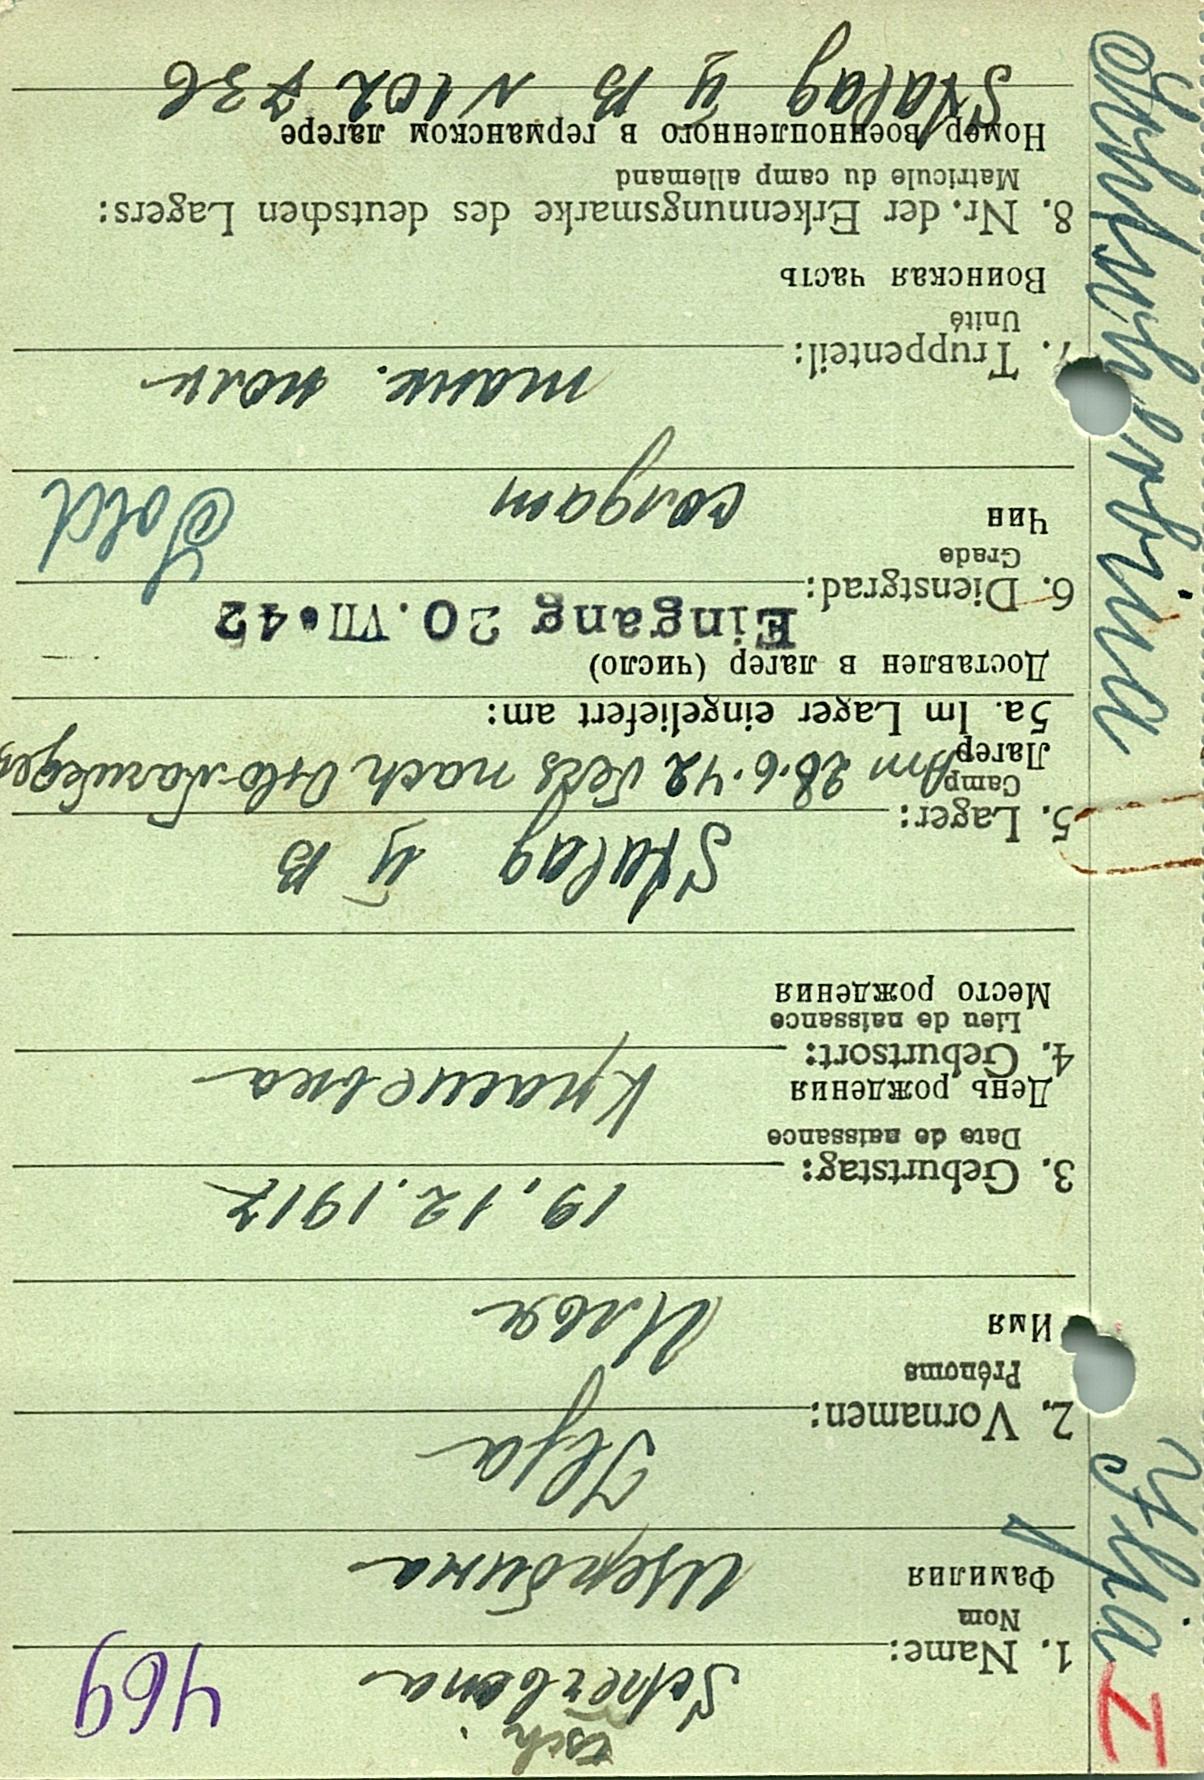 469
tsch
Scherbina
1. Name:
Nom
Фамилия
Щербина
Ilja
2. Vornamen:
Prénoms
Имя
Илья
19.12.1917
3. Geburtstag:
Date de naissance
День рождения
4. Geburtsort:
Lieu de naissance
Место рождения
Stalag IV B
5. Lager:
Camp
Лагер
Am 28.6.42 Vers nach Oslo Norwegen
5a. Im Lager eingeliefert am:
Доставлен в лагер (число)
Eingang 20. VII. 42
6. Dienstgrad:
Grade
Чин
солдат
Sold
танк. полк
7. Truppenteil:
Unité
Воинская часть
8. Nr. der Erkennungsmarke des deutschen Lagers:
Matricule du camp allemand
Номер военнопленного в германском лагере
Stalag IV B N 102 736
I
Ilja
Schtscherbina